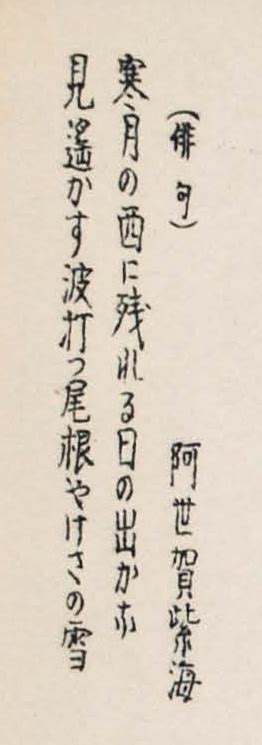 (俳句) 阿世賀紫海
寒月の西に残れる日の出かな
見遥かす波打つ尾根やけさの雪